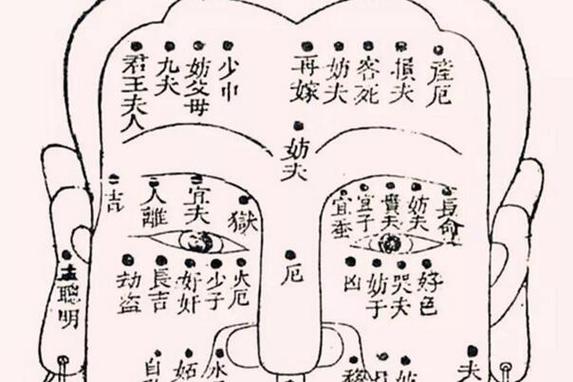 君王夫人
九夫
妨父母
少巾
再嫁
妨夫
客死
損夫
産厄
妨夫
吉
人離
宜夫
獄
宜蚕
宜子
貴夫
妨夫
長命
聰明
劫盗
長吉
奸奸
少子
火厄
厄
凶
妨子
哭夫
好色
夫